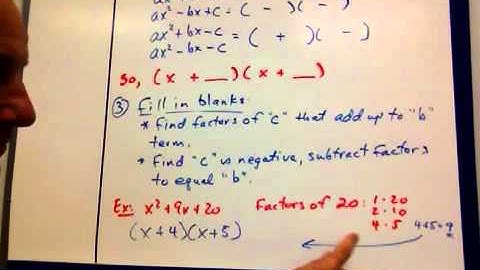 ax² - bx + c = ( - )( - )
ax² + bx - c = ( + )( - )
ax² - bx - c
So, (x + __)(x + __)
③ Fill in blanks:
* Find factors of "c" that add up to "b"
term.
* Find "c" is negative, subtract factors
to equal "b".
Ex: x² + 9x + 20 Factors of 20: 1 · 20
2 · 10
(x+4)(x+5) 4 · 5 4+5=9